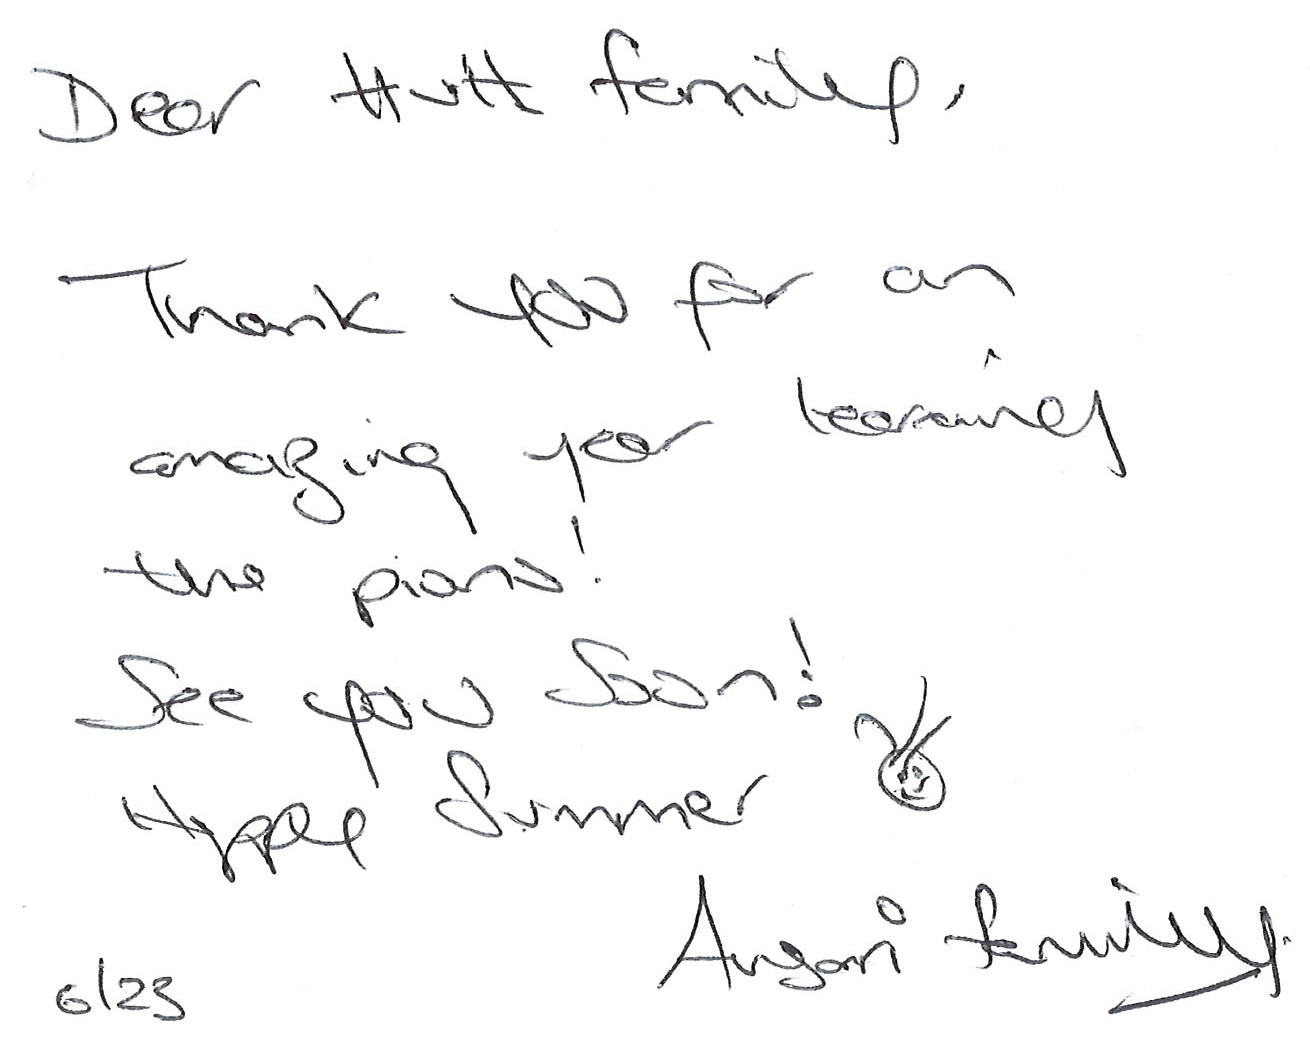 Dear Hutt family,
Thank you for an
amazing year learning
the piano!
See you Soon!
Happy Summer
family.
6/23